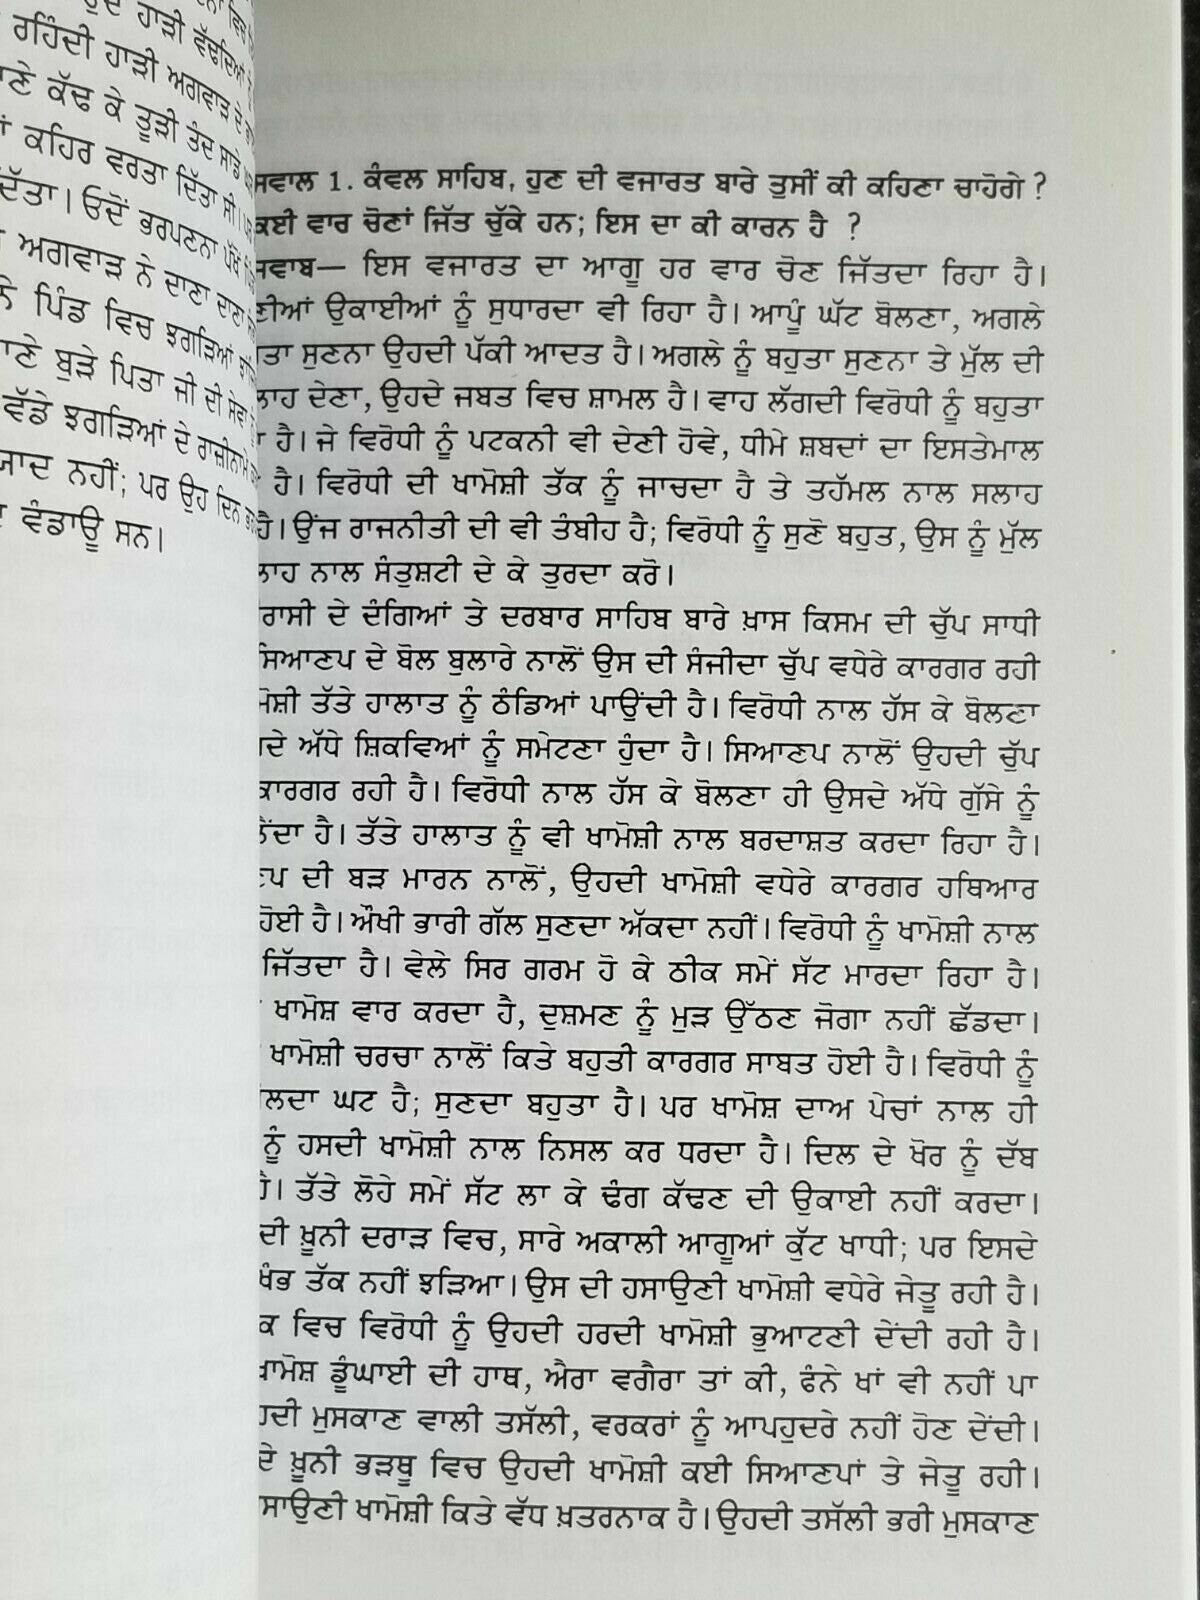 ਰਹਿੰਦੀ ਹਾੜੀ ਅਗਵਾੜ ਦੇ
ਕੱਢ ਕੇ ਤੂੜੀ ਤੰਦ ਸਾਡੇ
ਕਹਿਰ ਵਰਤਾ ਦਿੱਤਾ ਸੀ।
ਓਦੋਂ ਭਰਪਣਨਾ ਪੱਖੋਂ
ਅਗਵਾੜ ਨੇ ਦਾਣਾ ਦਾਣਾ
ਨੇ ਪਿੰਡ ਵਿਚ ਝਗੜਿਆਂ
ਬੁੜੇ ਪਿਤਾ ਜੀ ਦੀ ਸੇਵਾ
ਵੱਡੇ ਝਗੜਿਆਂ ਦੇ ਰਾਜ਼ੀਨਾਮੇ
ਯਾਦ ਨਹੀਂ; ਪਰ ਉਹ ਦਿਨ
ਵੰਡਾਊ ਸਨ।
ਸਵਾਲ 1. ਕੰਵਲ ਸਾਹਿਬ, ਹੁਣ ਦੀ ਵਜਾਰਤ ਬਾਰੇ ਤੁਸੀਂ ਕੀ ਕਹਿਣਾ ਚਾਹੋਗੇ ?
ਕਈ ਵਾਰ ਚੋਣਾਂ ਜਿੱਤ ਚੁੱਕੇ ਹਨ; ਇਸ ਦਾ ਕੀ ਕਾਰਨ ਹੈ ?
ਜਵਾਬ— ਇਸ ਵਜਾਰਤ ਦਾ ਆਗੂ ਹਰ ਵਾਰ ਚੋਣ ਜਿੱਤਦਾ ਰਿਹਾ ਹੈ।
ਉਕਾਈਆਂ ਨੂੰ ਸੁਧਾਰਦਾ ਵੀ ਰਿਹਾ ਹੈ। ਆਪੂੰ ਘੱਟ ਬੋਲਣਾ, ਅਗਲੇ
ਸੁਣਨਾ ਉਹਦੀ ਪੱਕੀ ਆਦਤ ਹੈ। ਅਗਲੇ ਨੂੰ ਬਹੁਤਾ ਸੁਣਨਾ ਤੇ ਮੁੱਲ ਦੀ
ਦੇਣਾ, ਉਹਦੇ ਜਬਤ ਵਿਚ ਸ਼ਾਮਲ ਹੈ। ਵਾਹ ਲੱਗਦੀ ਵਿਰੋਧੀ ਨੂੰ ਬਹੁਤਾ
ਹੈ। ਜੇ ਵਿਰੋਧੀ ਨੂੰ ਪਟਕਨੀ ਵੀ ਦੇਣੀ ਹੋਵੇ, ਧੀਮੇ ਸ਼ਬਦਾਂ ਦਾ ਇਸਤੇਮਾਲ
ਹੈ। ਵਿਰੋਧੀ ਦੀ ਖਾਮੋਸ਼ੀ ਤੱਕ ਨੂੰ ਜਾਚਦਾ ਹੈ ਤੇ ਤਹੱਮਲ ਨਾਲ ਸਲਾਹ
ਹੈ। ਉਂਜ ਰਾਜਨੀਤੀ ਦੀ ਵੀ ਤੰਬੀਹ ਹੈ; ਵਿਰੋਧੀ ਨੂੰ ਸੁਣੋ ਬਹੁਤ, ਉਸ ਨੂੰ ਮੁੱਲ
ਨਾਲ ਸੰਤੁਸ਼ਟੀ ਦੇ ਕੇ ਤੁਰਦਾ ਕਰੋ।
ਦੇ ਦੰਗਿਆਂ ਤੇ ਦਰਬਾਰ ਸਾਹਿਬ ਬਾਰੇ ਖ਼ਾਸ ਕਿਸਮ ਦੀ ਚੁੱਪ ਸਾਧੀ
ਸਿਆਣਪ ਦੇ ਬੋਲ ਬੁਲਾਰੇ ਨਾਲੋਂ ਉਸ ਦੀ ਸੰਜੀਦਾ ਚੁੱਪ ਵਧੇਰੇ ਕਾਰਗਰ ਰਹੀ
ਤੱਤੇ ਹਾਲਾਤ ਨੂੰ ਠੰਡਿਆਂ ਪਾਉਂਦੀ ਹੈ। ਵਿਰੋਧੀ ਨਾਲ ਹੱਸ ਕੇ ਬੋਲਣਾ
ਅੱਧੇ ਸ਼ਿਕਵਿਆਂ ਨੂੰ ਸਮੇਟਣਾ ਹੁੰਦਾ ਹੈ। ਸਿਆਣਪ ਨਾਲੋਂ ਉਹਦੀ ਚੁੱਪ
ਕਾਰਗਰ ਰਹੀ ਹੈ। ਵਿਰੋਧੀ ਨਾਲ ਹੱਸ ਕੇ ਬੋਲਣਾ ਹੀ ਉਸਦੇ ਅੱਧੇ ਗੁੱਸੇ ਨੂੰ
ਹੈ। ਤੱਤੇ ਹਾਲਾਤ ਨੂੰ ਵੀ ਖਾਮੋਸ਼ੀ ਨਾਲ ਬਰਦਾਸ਼ਤ ਕਰਦਾ ਰਿਹਾ ਹੈ।
ਦੀ ਬੜ ਮਾਰਨ ਨਾਲੋਂ, ਉਹਦੀ ਖਾਮੋਸ਼ੀ ਵਧੇਰੇ ਕਾਰਗਰ ਹਥਿਆਰ
ਹੋਈ ਹੈ। ਔਖੀ ਭਾਰੀ ਗੱਲ ਸੁਣਦਾ ਅੱਕਦਾ ਨਹੀਂ। ਵਿਰੋਧੀ ਨੂੰ ਖਾਮੋਸ਼ੀ ਨਾਲ
ਜਿੱਤਦਾ ਹੈ। ਵੇਲੇ ਸਿਰ ਗਰਮ ਹੋ ਕੇ ਠੀਕ ਸਮੇਂ ਸੱਟ ਮਾਰਦਾ ਰਿਹਾ ਹੈ।
ਖਾਮੋਸ਼ ਵਾਰ ਕਰਦਾ ਹੈ, ਦੁਸ਼ਮਣ ਨੂੰ ਮੁੜ ਉੱਠਣ ਜੋਗਾ ਨਹੀਂ ਛੱਡਦਾ।
ਖਾਮੋਸ਼ੀ ਚਰਚਾ ਨਾਲੋਂ ਕਿਤੇ ਬਹੁਤੀ ਕਾਰਗਰ ਸਾਬਤ ਹੋਈ ਹੈ। ਵਿਰੋਧੀ ਨੂੰ
ਘਟ ਹੈ; ਸੁਣਦਾ ਬਹੁਤਾ ਹੈ। ਪਰ ਖਾਮੋਸ਼ ਦਾਅ ਪੇਚਾਂ ਨਾਲ ਹੀ
ਨੂੰ ਹਸਦੀ ਖਾਮੋਸ਼ੀ ਨਾਲ ਨਿਸਲ ਕਰ ਧਰਦਾ ਹੈ। ਦਿਲ ਦੇ ਖੋਰ ਨੂੰ ਦੱਬ
ਹੈ। ਤੱਤੇ ਲੋਹੇ ਸਮੇਂ ਸੱਟ ਲਾ ਕੇ ਢੰਗ ਕੱਢਣ ਦੀ ਉਕਾਈ ਨਹੀਂ ਕਰਦਾ।
ਦੀ ਖ਼ੂਨੀ ਦਰਾੜ ਵਿਚ, ਸਾਰੇ ਅਕਾਲੀ ਆਗੂਆਂ ਕੁੱਟ ਖਾਧੀ; ਪਰ ਇਸਦੇ
ਖੰਭ ਤੱਕ ਨਹੀਂ ਝੜਿਆ। ਉਸ ਦੀ ਹਸਾਉਣੀ ਖਾਮੋਸ਼ੀ ਵਧੇਰੇ ਜੇਤੂ ਰਹੀ ਹੈ।
ਵਿਚ ਵਿਰੋਧੀ ਨੂੰ ਉਹਦੀ ਹਰਦੀ ਖਾਮੋਸ਼ੀ ਭੁਆਟਣੀ ਦੇਂਦੀ ਰਹੀ ਹੈ।
ਖਾਮੋਸ਼ ਡੂੰਘਾਈ ਦੀ ਹਾਥ, ਐਰਾ ਵਗੈਰਾ ਤਾਂ ਕੀ, ਫੰਨੇ ਖਾਂ ਵੀ ਨਹੀਂ ਪਾ
ਮੁਸਕਾਣ ਵਾਲੀ ਤਸੱਲੀ, ਵਰਕਰਾਂ ਨੂੰ ਆਪਹੁਦਰੇ ਨਹੀਂ ਹੋਣ ਦੇਂਦੀ।
ਦੇ ਖ਼ੂਨੀ ਭੜਥੂ ਵਿਚ ਉਹਦੀ ਖਾਮੋਸ਼ੀ ਕਈ ਸਿਆਣਪਾਂ ਤੇ ਜੇਤੂ ਰਹੀ।
ਖਾਮੋਸ਼ੀ ਕਿਤੇ ਵੱਧ ਖ਼ਤਰਨਾਕ ਹੈ। ਉਹਦੀ ਤਸੱਲੀ ਭਰੀ ਮੁਸਕਾਣ